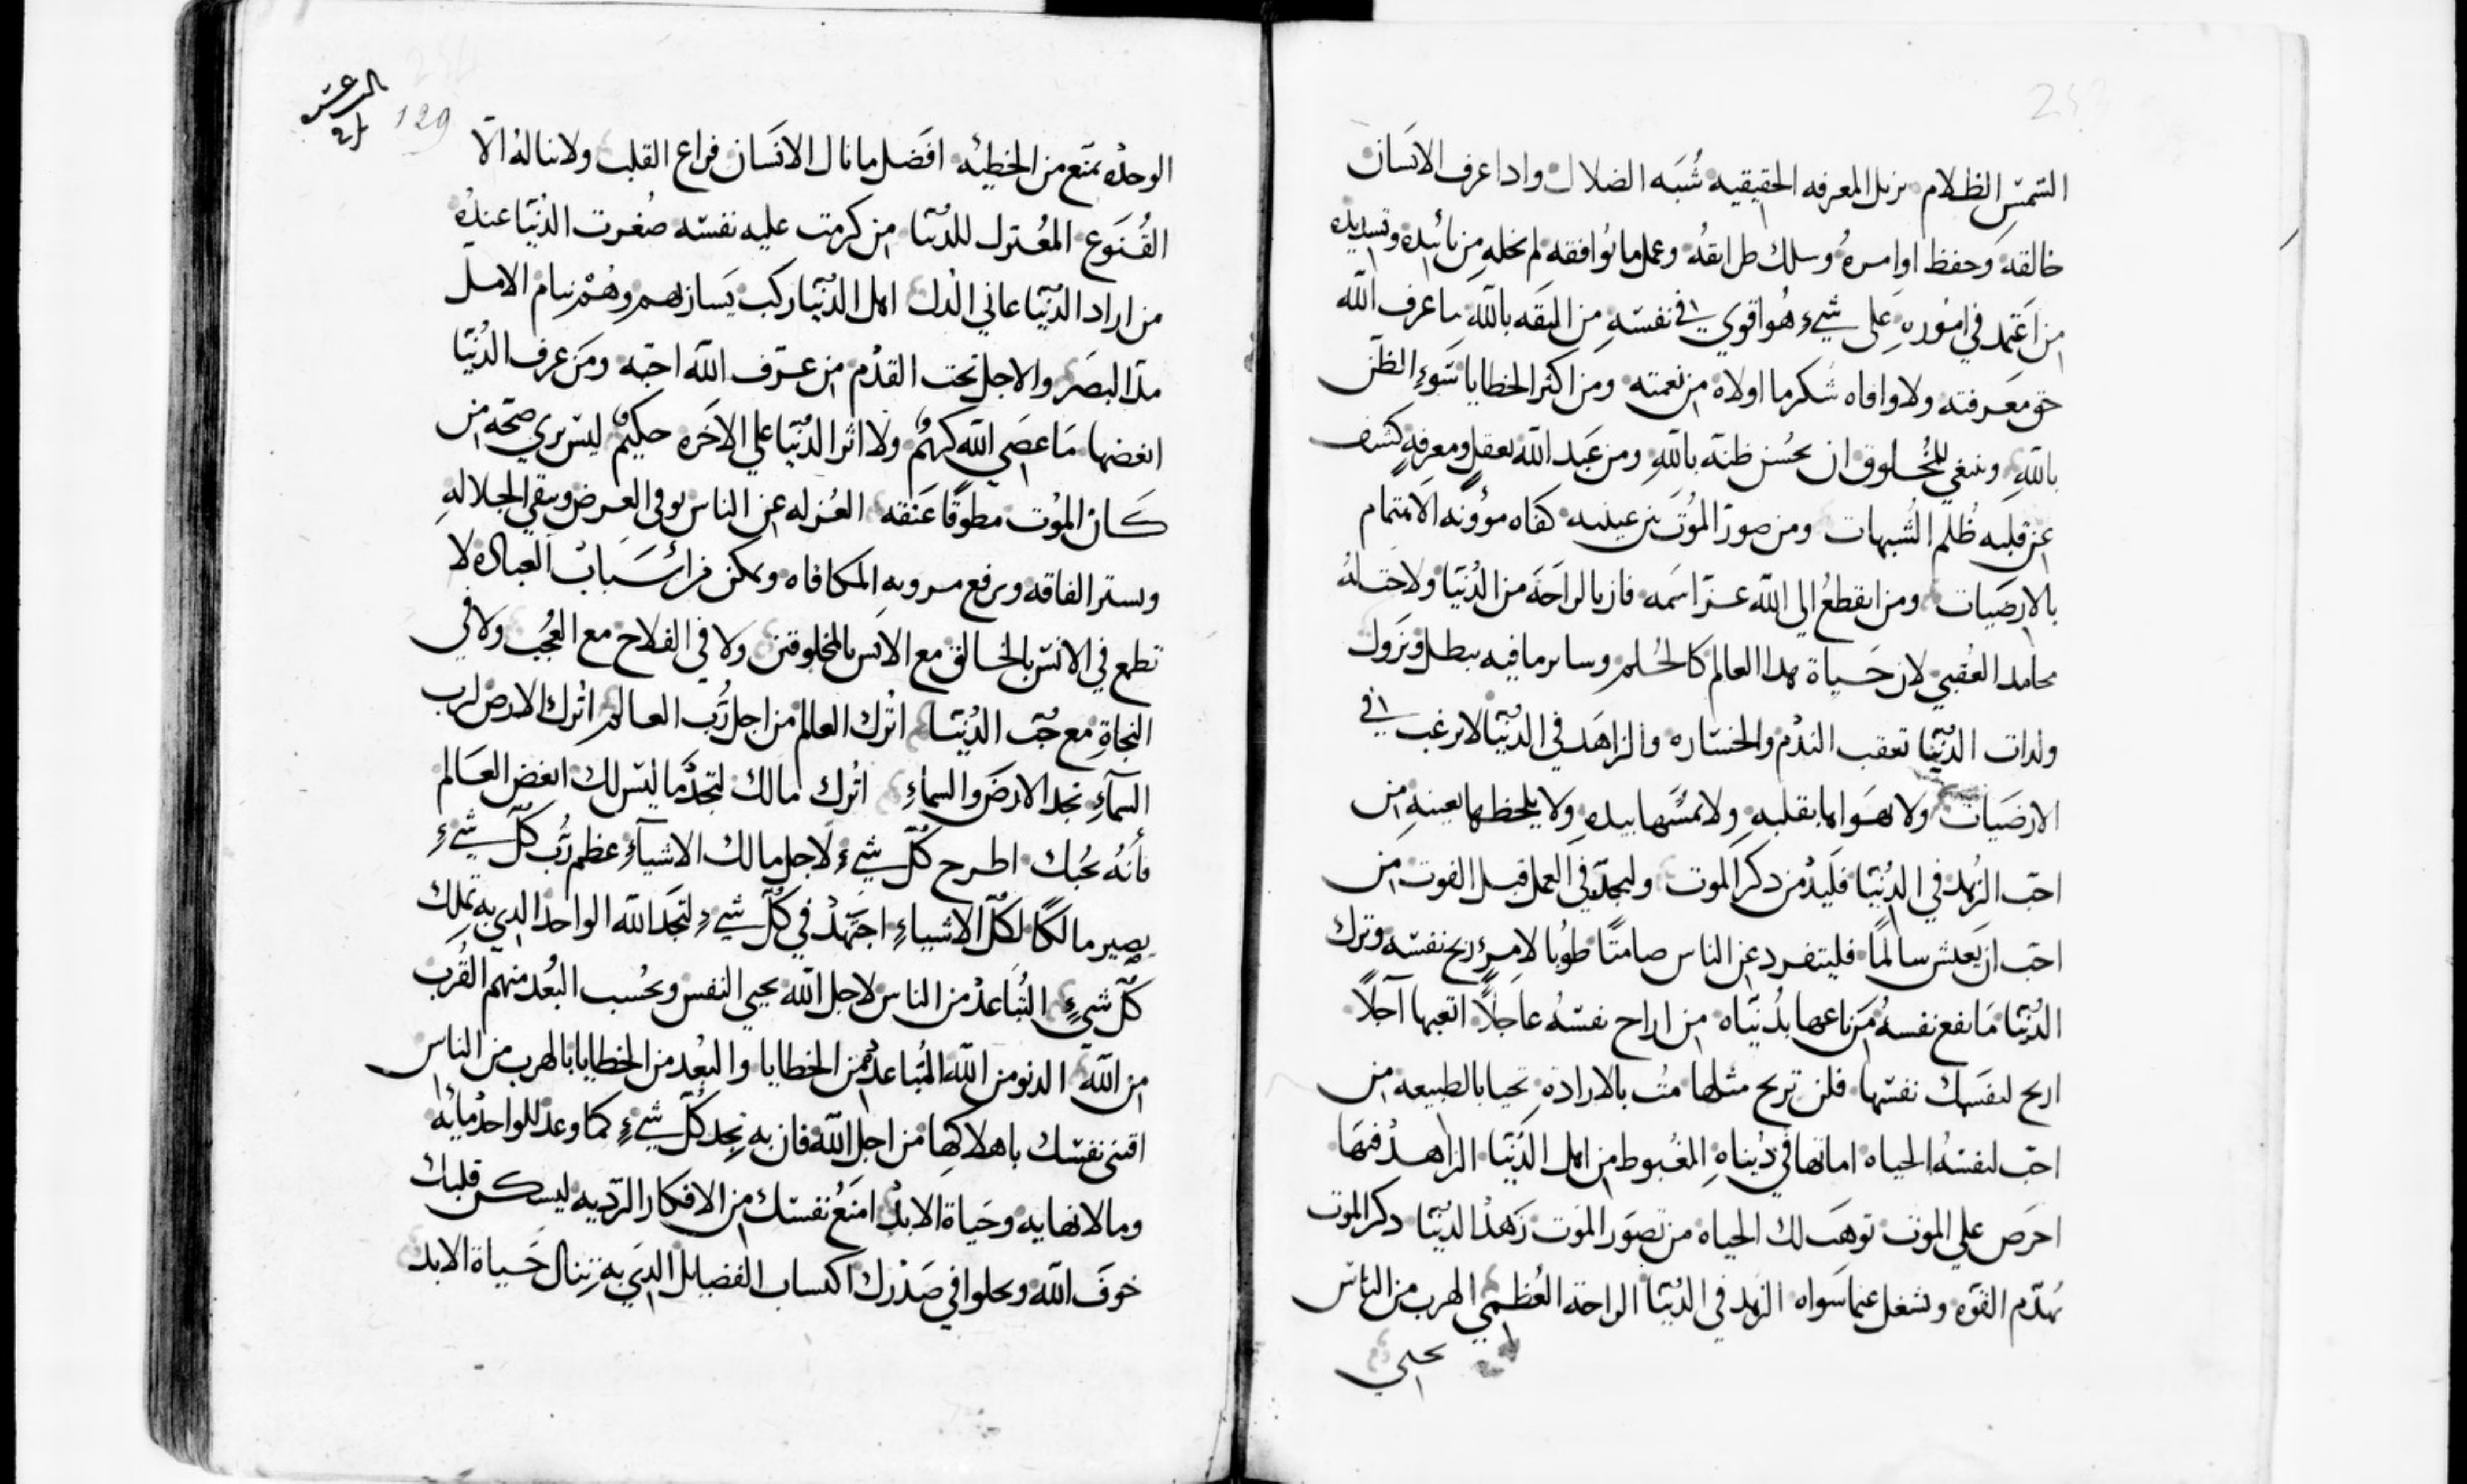 الشمس الظلام يزيل المعرفه الحقيقيه شُبَه الضلال وادا عرف الانسان
خالقه وحفظ اوامره وسلك طرايقه وعمل ما يوافقه لم يخله من تائيده وتسديده
من اعتمد في اموره على شيء هو اقوي في نفسه من الثقه بالله ما عرف الله
حق معرفته ولا وافاه شكر ما اولاه من نعمته ومن اكثر الخطايا سوء الظن
بالله وينبغي للمخلوق ان يحسن ظنه بالله ومن عبد الله بعقل ومعرفه كشف
عن قلبه ظُلم الشبهات ومن صور الموت بين عينيه كفاه موؤنه الاهتمام
بالارضيات ومن انقطع الي الله عز اسمه فاز بالراحه من الدنيا ولاحت له
محامد العُقبي لان حياة هدا العالم كالحُلم وساير ما فيه يبطل ويزول
ولدات الدنيا تعقب الندم والخساره والزاهد في الدنيا لا يرغب في
الارضيات ولا يهواها بقلبه ولا يمسها بيده ولا يلحظها بعينه من
احب الزهد في الدنيا فليدمن دكر الموت وليجد في العمل قبل الفوت من
احب ان يعيش سالمًا فليتفرد عن الناس صامتًا طوبا لامرء ربح نفسه وترك
الدنيا ما نفع نفسه من باعها بدنياه من اراح نفسه عاجلًا اتعبها آجلًا
اربح لنفسك نفسها فلن تربح مثلها مُت بالاراده تحيا بالطبيعه من
احب لنفسه الحياه اماتها في دنياه المغبوط من اهل الدنيا الزاهد فيها
احرص علي الموت توهب لك الحياه من تصور الموت زهد الدنيا دكر الموت
يهدم القوه ويشغل عما سواه الزهد في الدنيا الراحة العُظمي الهرب من الناس
يحيي
129
الوحده تمنع من الخطيئه افضل ما نال الانسان فراغ القلب ولا يناله الا
القُنوع المعُتزل للدنيا من كرمت عليه نفسه صغرت الدنيا عنده
من اراد الدنيا عاني الدل اهل الدنيا ركب يسار بهم وهُم نيام الامل
مدا البصر والاجل تحت القدم من عرف الله احبه ومن عرف الدنيا
ابغضها ما عصي الله كريم ولا اثر الدنيا علي الاخره حكيم ليس بري صحه من
كان الموت مطوقًا عنقه العُزله عن الناس توفي العرض وتبقي الجلاله
وتستر الفاقه وترفع مروبه المكافاه وتمكن من اسباب العباده لا
تطمع في الانس بالخالق مع الانس بالمخلوقين ولا في الفلاح مع العجُب ولا في
النجاة مع حُب الدنيا اترك العالم من اجل رب العالم اترك الارض لرب
السمآء تجد الارض والسماء اترك مالك لتجد ما ليس لك ابغض العالم
فأنه يحُبك اطرح كُل شيء لاجل مالك الاشيآء عظم رب كُل شيء
يصير مالكًا لكل الاشياء اجتهد في كُل شيء لتجد الله الواحد الدي به تملك
كل شيءٍ التُباعد من الناس لاجل الله يحيي النفس وبحُسب البُعد منهم القُرب
من الله الدنو من الله المُتباعد من الخطايا والبعُد من الخطايا بالهرب من الناس
اقتني نفسك باهلاكها من اجل الله فان به تجد كُل شيء كما وعد للواحد مائه
وما لا نهايه وحياة الابد امنع نفسك من الافكار الرديه ليسكن قلبك
خوف الله ويحلوا في صدرك اكتساب الفضايل الدي به تنال حياة الابد